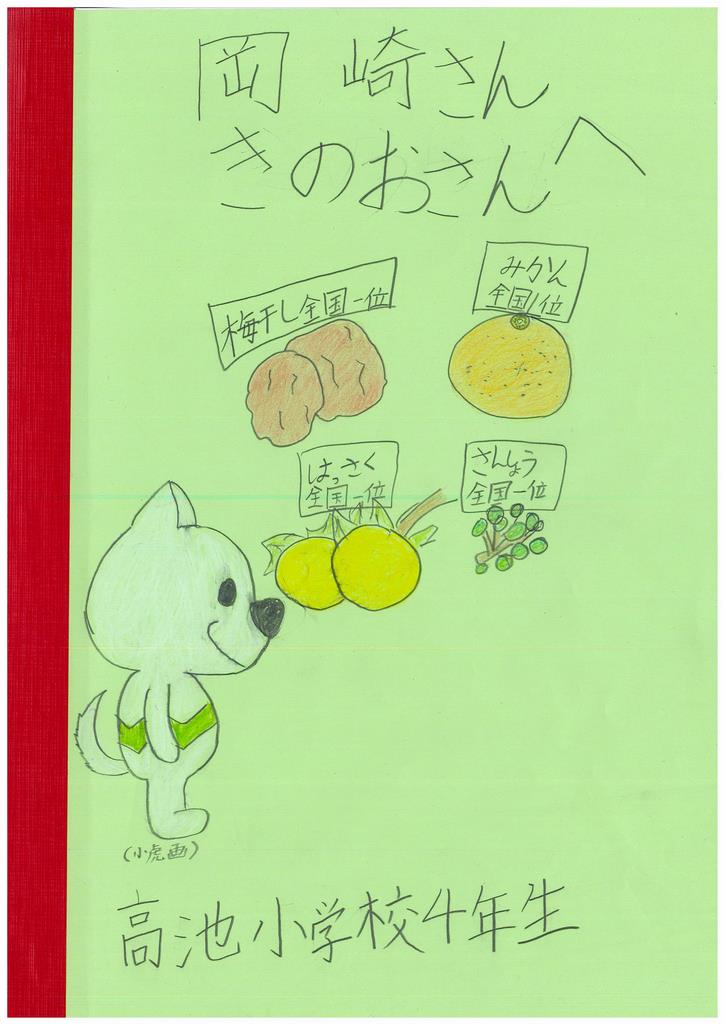 岡崎さん
きのおさんへ
梅干し全国一位
みかん
全国1位
はっさく
全国一位
さんしょう
全国一位
(小虎画)
高池小学校4年生